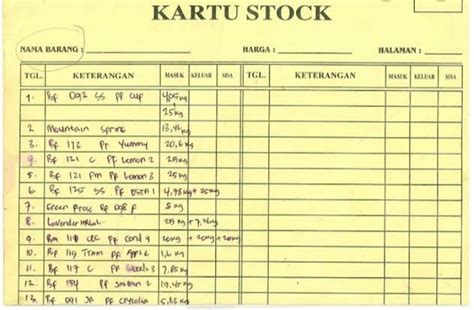 KARTU STOCK
NAMA BARANG : HARGA : HALAMAN :
TGL. KETERANGAN MASUK KELUAR SISA TGL. KETERANGAN MASUK KELUAR SISA
1. Bf 092 SS PF cup 405 kg
25 kg
2 Mountain Spring 13,44 kg
3. Bf 172 Pr Yummy 20,6 kg
Bf 121 C PF Lemon 2 25 kg
5. Bf 121 Pm PF Lemon 3 25 kg
6 Bf 125 SS PF 4,75 kg + 25 kg
7. Green 5 kg
8. Lavender 25 kg + 7,
9. 118 PF Cond 4 20 kg + 20 kg + 20 kg
10. Bf 119 PF Apple 1,6 kg
11. Bf 117 C PF 3 7,85 kg
12. Bf 154 PF Jasmin 2 19,44 kg
13. Bf 091 PF 5,22 kg